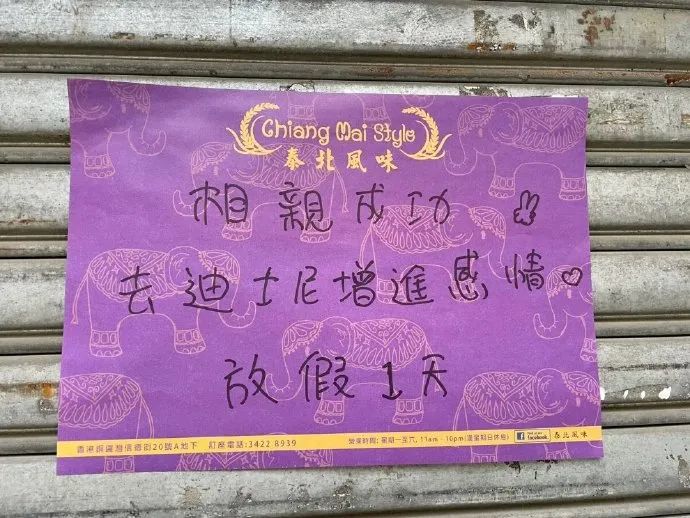 Chiang Mai Style
泰北風味
相親成功
去迪士尼增進感情
放假1天
香港銅鑼灣信德街20號A地下 訂座電話:3422 8939
營業時間: 星期一至六, 11am - 10pm(逢星期日休息) facebook 泰北風味